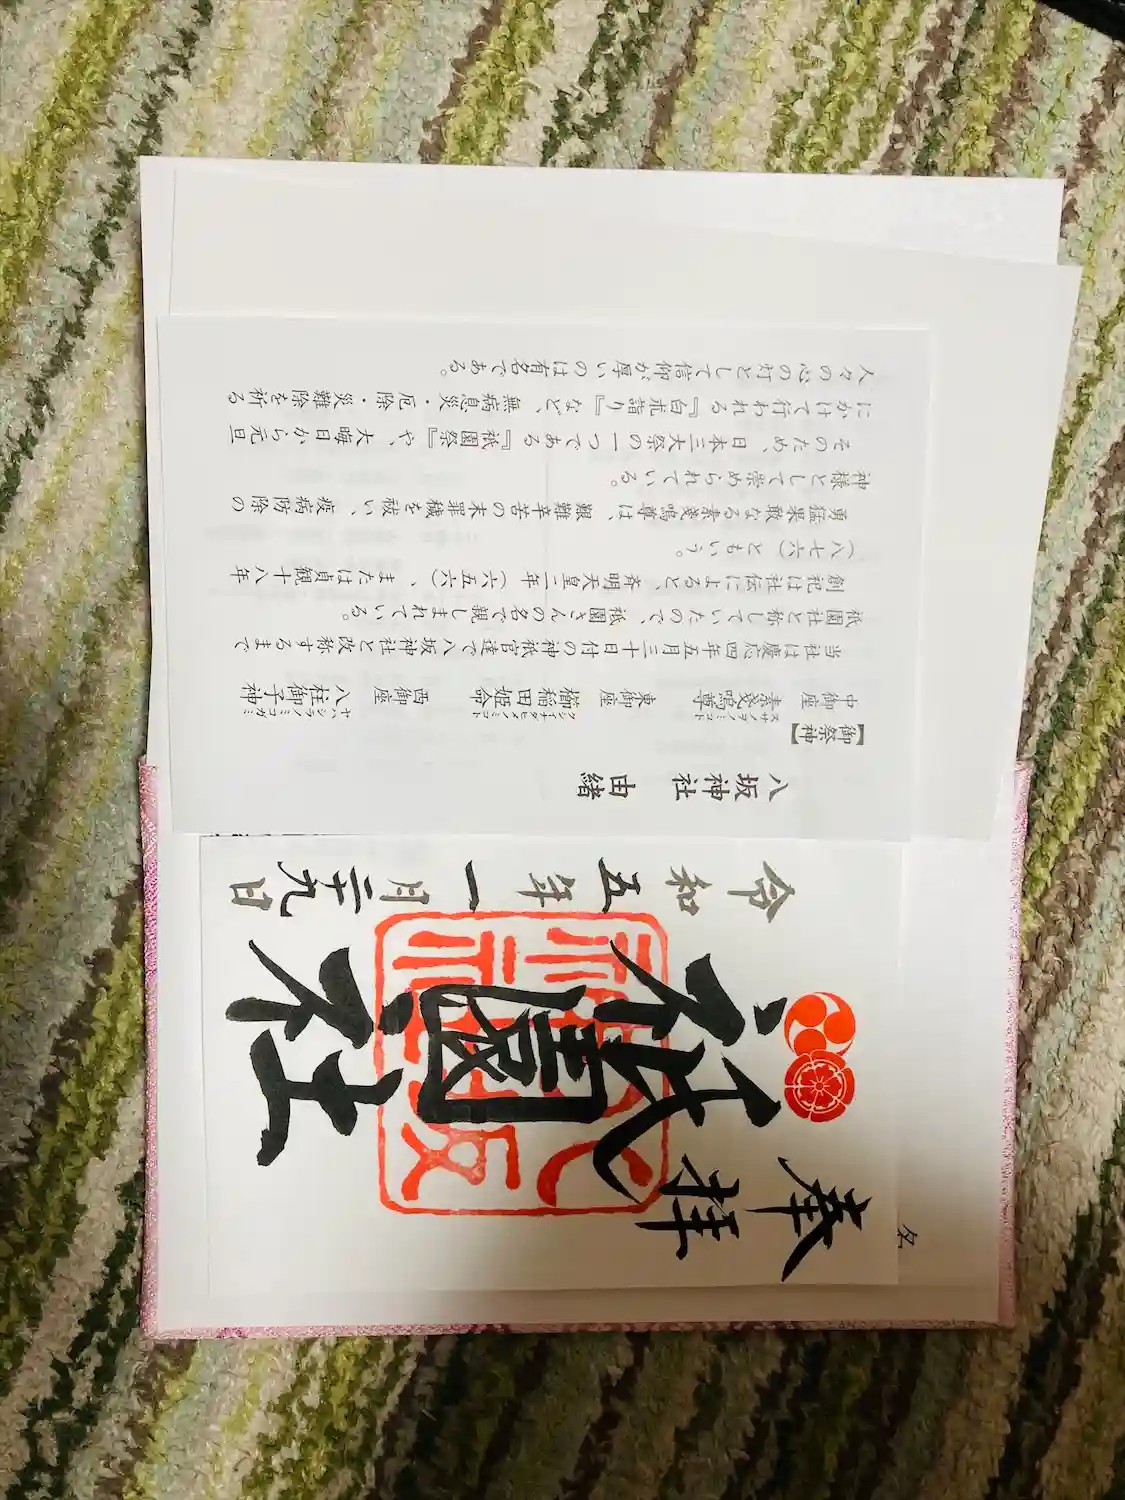 八坂神社 由緒
【御祭神】
中御座 素戔嗚尊 東御座 櫛稲田姫命 西御座 八柱御子神
スサヲノミコト クシイナダヒメノミコト ヤハシラノミコガミ
当社は慶応四年五月三十日付の神祇官達で八坂神社と改称するまで
祇園社と称していたので、祇園さんの名で親しまれている。
創祀は社伝によると、斉明天皇二年（六五六）、または貞観十八年
（八七六）ともいう。
勇猛果敢なる素戔嗚尊は、艱難辛苦の末罪穢を祓い、疫病防除の
神様として崇められている。
そのため、日本三大祭の一つである『祇園祭』や、大晦日から元旦
にかけて行われる『白朮詣り』など、無病息災・厄除・災難除を祈る
人々の心の灯として信仰が厚いのは有名である。
名
奉拝
祇園社
八坂神社
令和五年一月二十九日